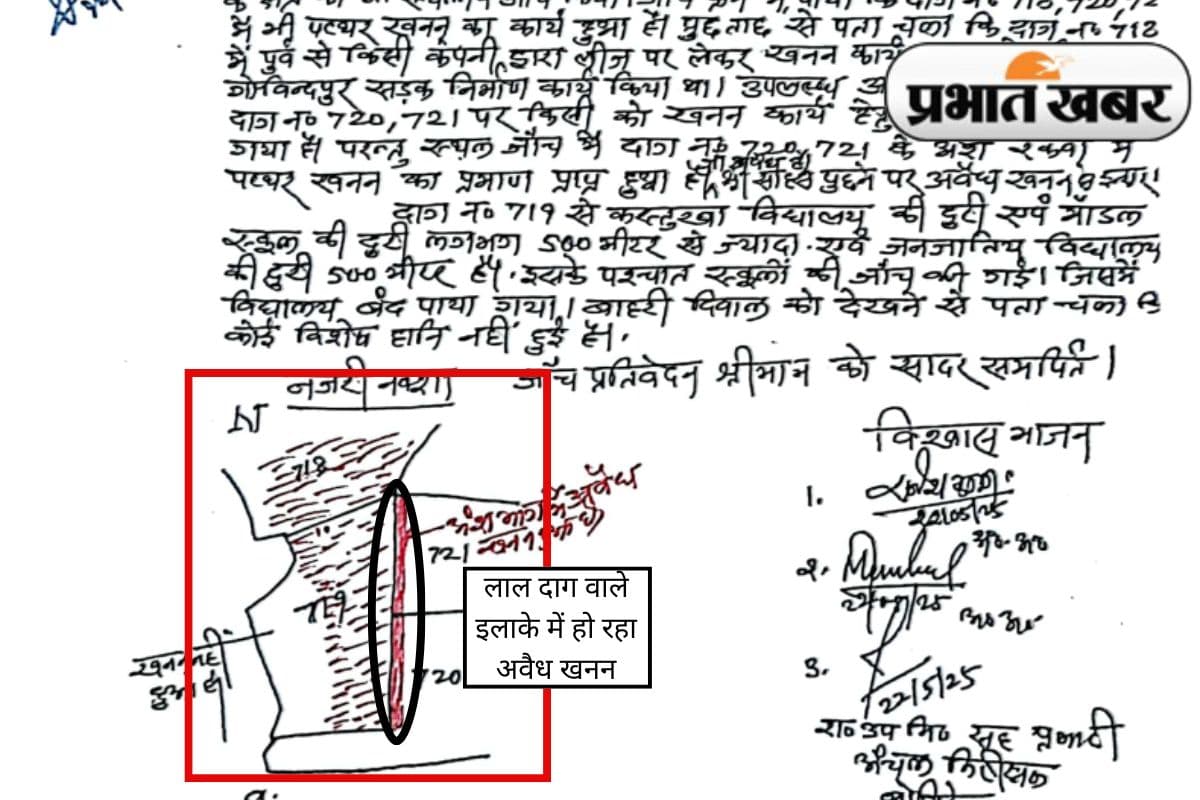 में भी पत्थर खनन का कार्य हुआ है। पुछताछ से पता चला कि दाग न० 718
में पुर्व से किसी कंपनी द्वारा लीज पर लेकर खनन कार्य
गोविन्दपुर सड़क निर्माण कार्य किया था। उपलब्ध
दाग न० 720, 721 पर किसी को खनन कार्य हेतु
गया है। परन्तु स्थल जाँच में दाग न० 720, 721 के अंश रकवा में
जो अवैध है।
पत्थर खनन का प्रमाण प्राप्त हुआ है। पुछने पर अवैध खनन
दाग न० 719 से कस्तुरबा विद्यालय की दुरी एवं मॉडल
स्कूल की दुरी लगभग 500 मीटर से ज्यादा एवं जनजातिय विद्यालय
की दुरी 500 मीटर है। इसके पश्चात स्कूलों की जाँच की गई। जिसमें
विद्यालय बंद पाया गया। बाहरी दिवाल को देखने से पता चला कि
कोई विशेष हानि नहीं हुई है।
जाँच प्रतिवेदन श्रीमान को सादर समर्पित।
प्रभात खबर
नजरी नक्शा
N
718
719
721
720
अंश भाग में अवैध
खनन
खनन नहीं
हुआ है।
लाल दाग वाले
इलाके में हो रहा
अवैध खनन
विश्वास भाजन
1.
22/05/25
2.
अ० अ०
3.
22/5/25
रा० उप नि० सह प्रभारी
अंचल निरीक्षक